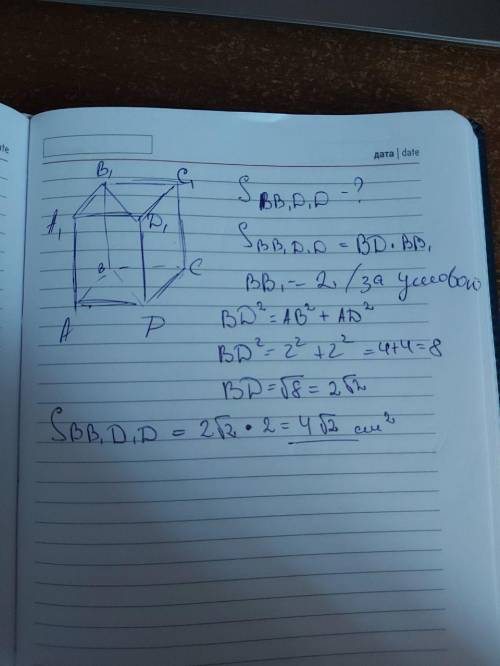 дата | date
B₁ C₁
A₁ D₁
B C
A D
S BB₁D₁D - ?
S BB₁D₁D = BD · BB₁
BB₁ - 2 / за умовою
BD² = AB² + AD²
BD² = 2² + 2² = 4+4 = 8
BD = √8 = 2√2
S BB₁D₁D = 2√2 · 2 = 4√2 см²